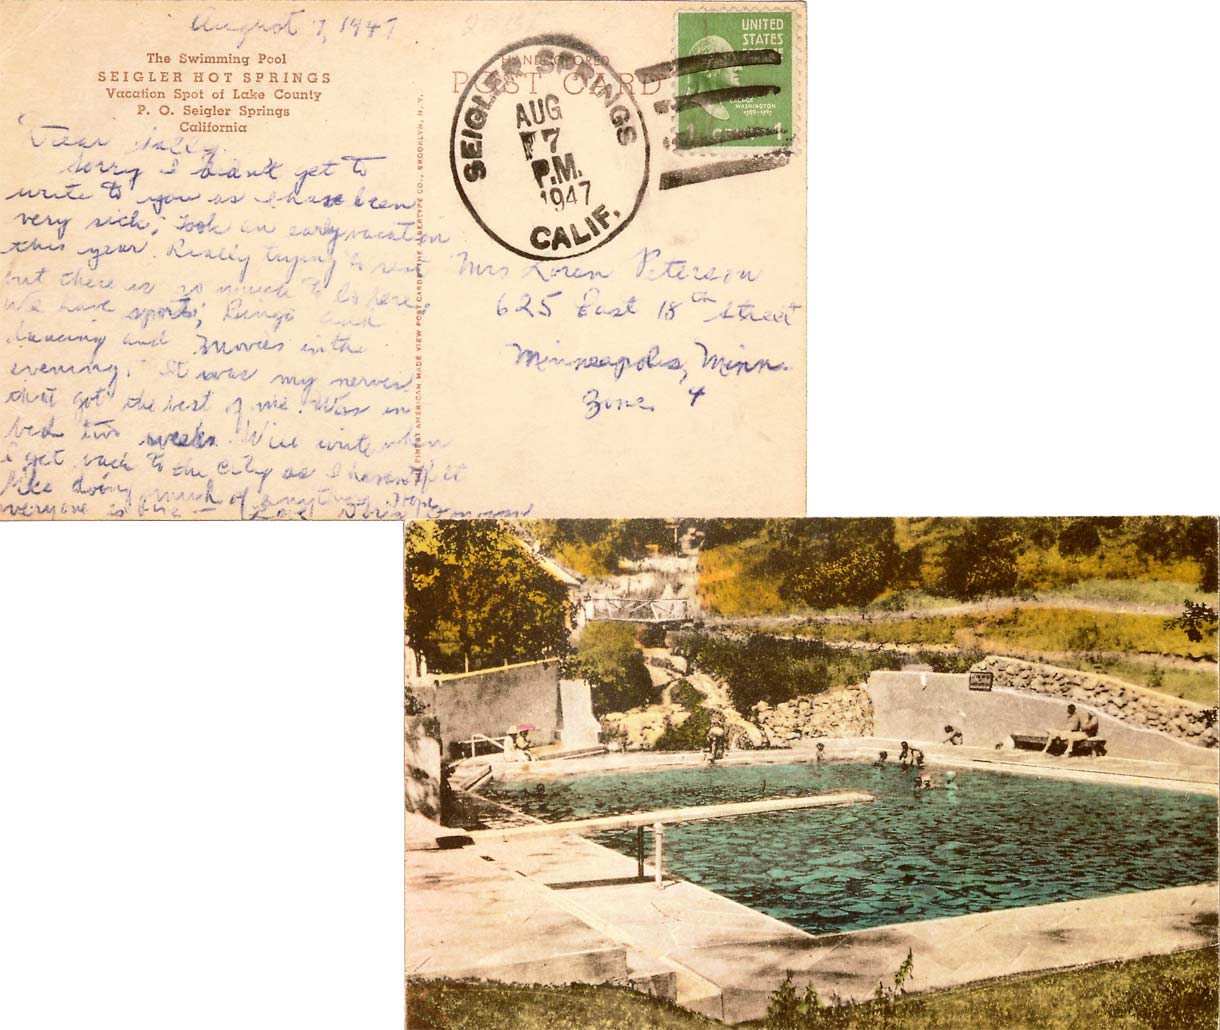 August 7, 1947
The Swimming Pool
SEIGLER HOT SPRINGS
Vacation Spot of Lake County
P. O. Seigler Springs
California
HAND COLORED
POST CARD
SEIGLER SPRINGS
AUG
7
P.M.
1947
CALIF.
UNITED
STATES
GEORGE
WASHINGTON
1 1
Dear
Sorry I didn't get to
write to you as I have been
very sick. Took an early vacation
this year. Really trying to rest
but there is so much to do here.
We have sports, Bingo and
dancing and Movies in the
evening. It was my nerves
that got the best of me. Was in
bed two weeks. Will write when
I get back to the City as I haven't felt
like doing much of anything. Hope
everyone is fine —
THE FINEST AMERICAN MADE VIEW POST CARDS THE ALBERTYPE CO., BROOKLYN, N. Y.
Mrs Loren Peterson
625 East 18th Street
Minneapolis, Minn.
Zone 4